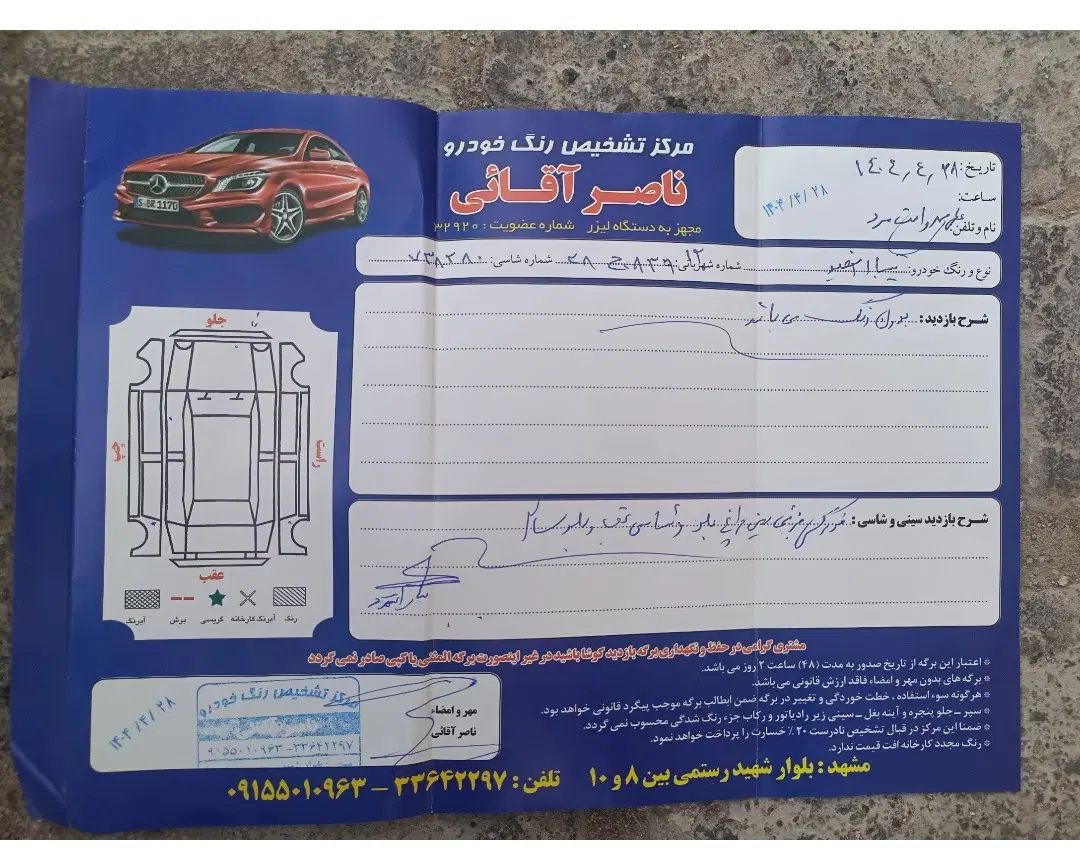 مرکز تشخیص رنگ خودرو
ناصر آقائی
مجهز به دستگاه لیزر شماره عضویت : ۳۲۹۲۰
تاریخ: ۱۴۰۴٫۴٫۲۸
ساعت:
۱۴۰۴/۴/۲۸
نام و تلفن:
نوع و رنگ خودرو: سایپا سفید شماره شهربانی: ۸۳۹ ج ۲۸ شماره شاسی: ۷۳۸۲۸۰
S·BR 1170
شرح بازدید: بدون رنگ می باشد
شرح بازدید سینی و شاسی:
جلو
چپ
راست
عقب
رنگ آبرنگ کارخانه کریسی برش آبرنگ
مشتری گرامی در حفظ و نگهداری برگه بازدید کوشا باشید در غیر اینصورت برگه المثنی یا کپی صادر نمی گردد
* اعتبار این برگه از تاریخ صدور به مدت (۴۸) ساعت ۲ روز می باشد.
* برگه های بدون مهر و امضاء فاقد ارزش قانونی می باشد.
* هرگونه سوء استفاده ، خطت خوردگی و تغییر در برگه ضمن ابطالب برگه موجب پیگرد قانونی خواهد بود.
* سپر ــ جلو پنجره و آینه بغل ــ سینی زیر رادیاتور و رکاب جزء رنگ شدگی محسوب نمی گردد.
* ضمنا این مرکز در قبال تشخیص نادرست ۲۰٪ خسارت را پرداخت خواهد نمود.
* رنگ مجدد کارخانه افت قیمت ندارد.
مهر و امضاء
ناصر آقائی
مرکز تشخیص رنگ خودرو
۰۹۱۵۵۰۱۰۹۶۳-۳۳۶۴۲۲۹۷
۱۴۰۴/۴/۲۸
مشهد : بلوار شهید رستمی بین ۸ و ۱۰ تلفن : ۳۳۶۴۲۲۹۷ – ۰۹۱۵۵۰۱۰۹۶۳